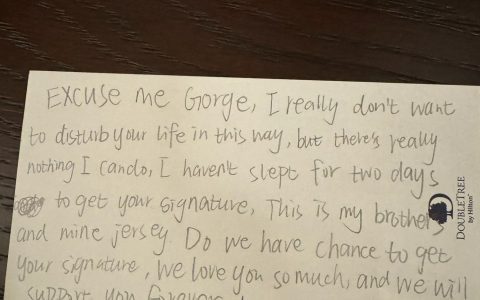 Excuse me Gorge, I really don't want
to disturb your life in this way, but there's really
nothing I can do, I haven't slept for two days
to get your signature, This is my brothers
and mine jersey Do we have chance to get
your signature, we love you so much, and we will
support you
DOUBLETREE
by Hilton